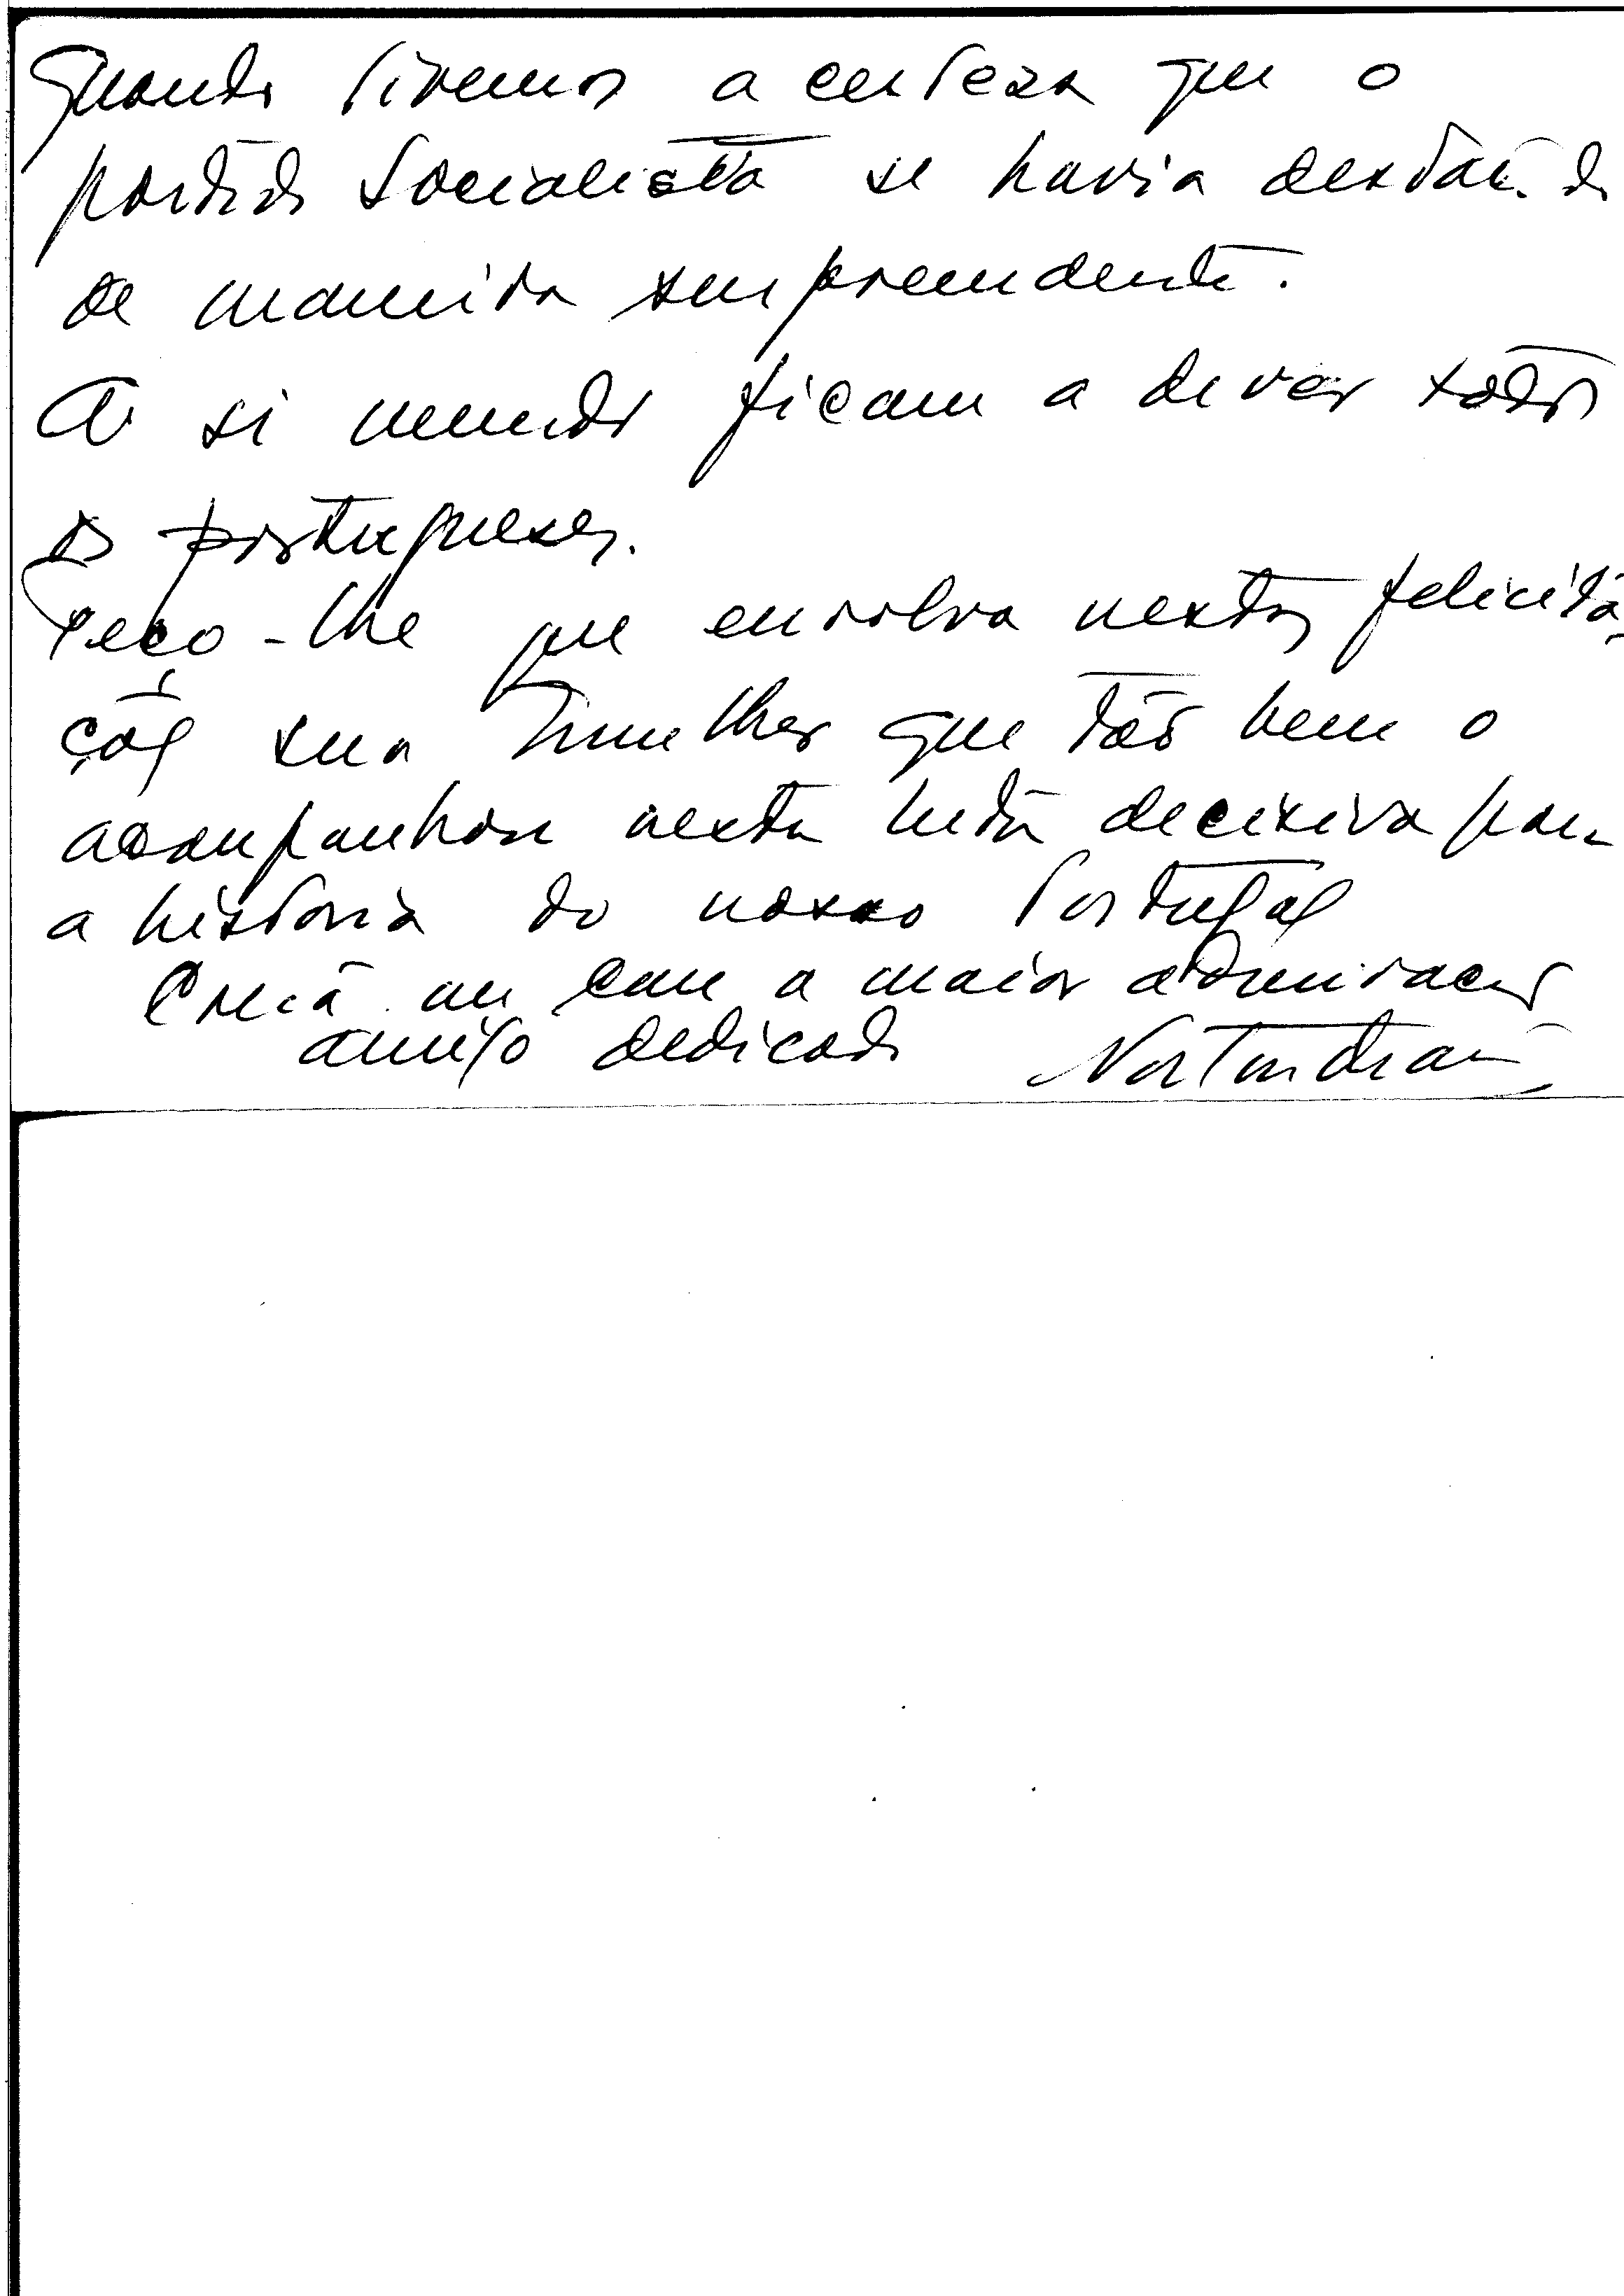 Quando tivemos a certeza que o
partido Socialista se havia destacado
de maneira surpreendente.
A si muito ficam a dever todos
os portugueses.
Peço-lhe que envolva nestas felicita
ções sua mulher que tão bem o
acompanhou nesta luta decisiva para
a historia do nosso Portugal
Creia me com a maior admiração
amigo dedicado